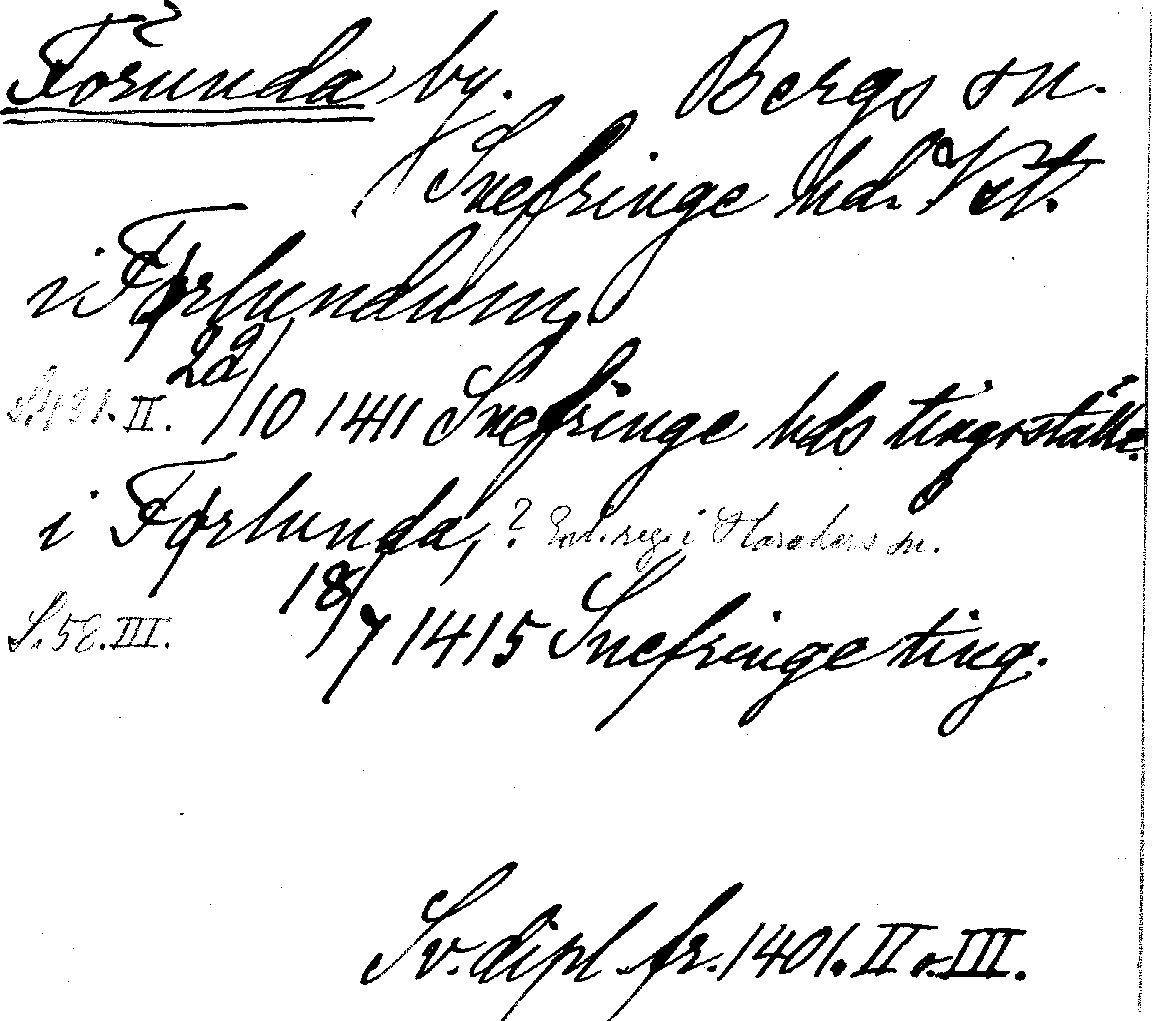 ?
Forunda by. Bergs sn.
Snefringe hd. Vstm.
i Førlundum,
S. 431. II. 29/10 1411 Snefringe hds tingsställe.
i Førlunda, ? Enl. reg. i Haraker sn.
S. 58. III. 18/7 1415 Snefringe ting.
Sv. dipl. fr. 1401. II o. III.